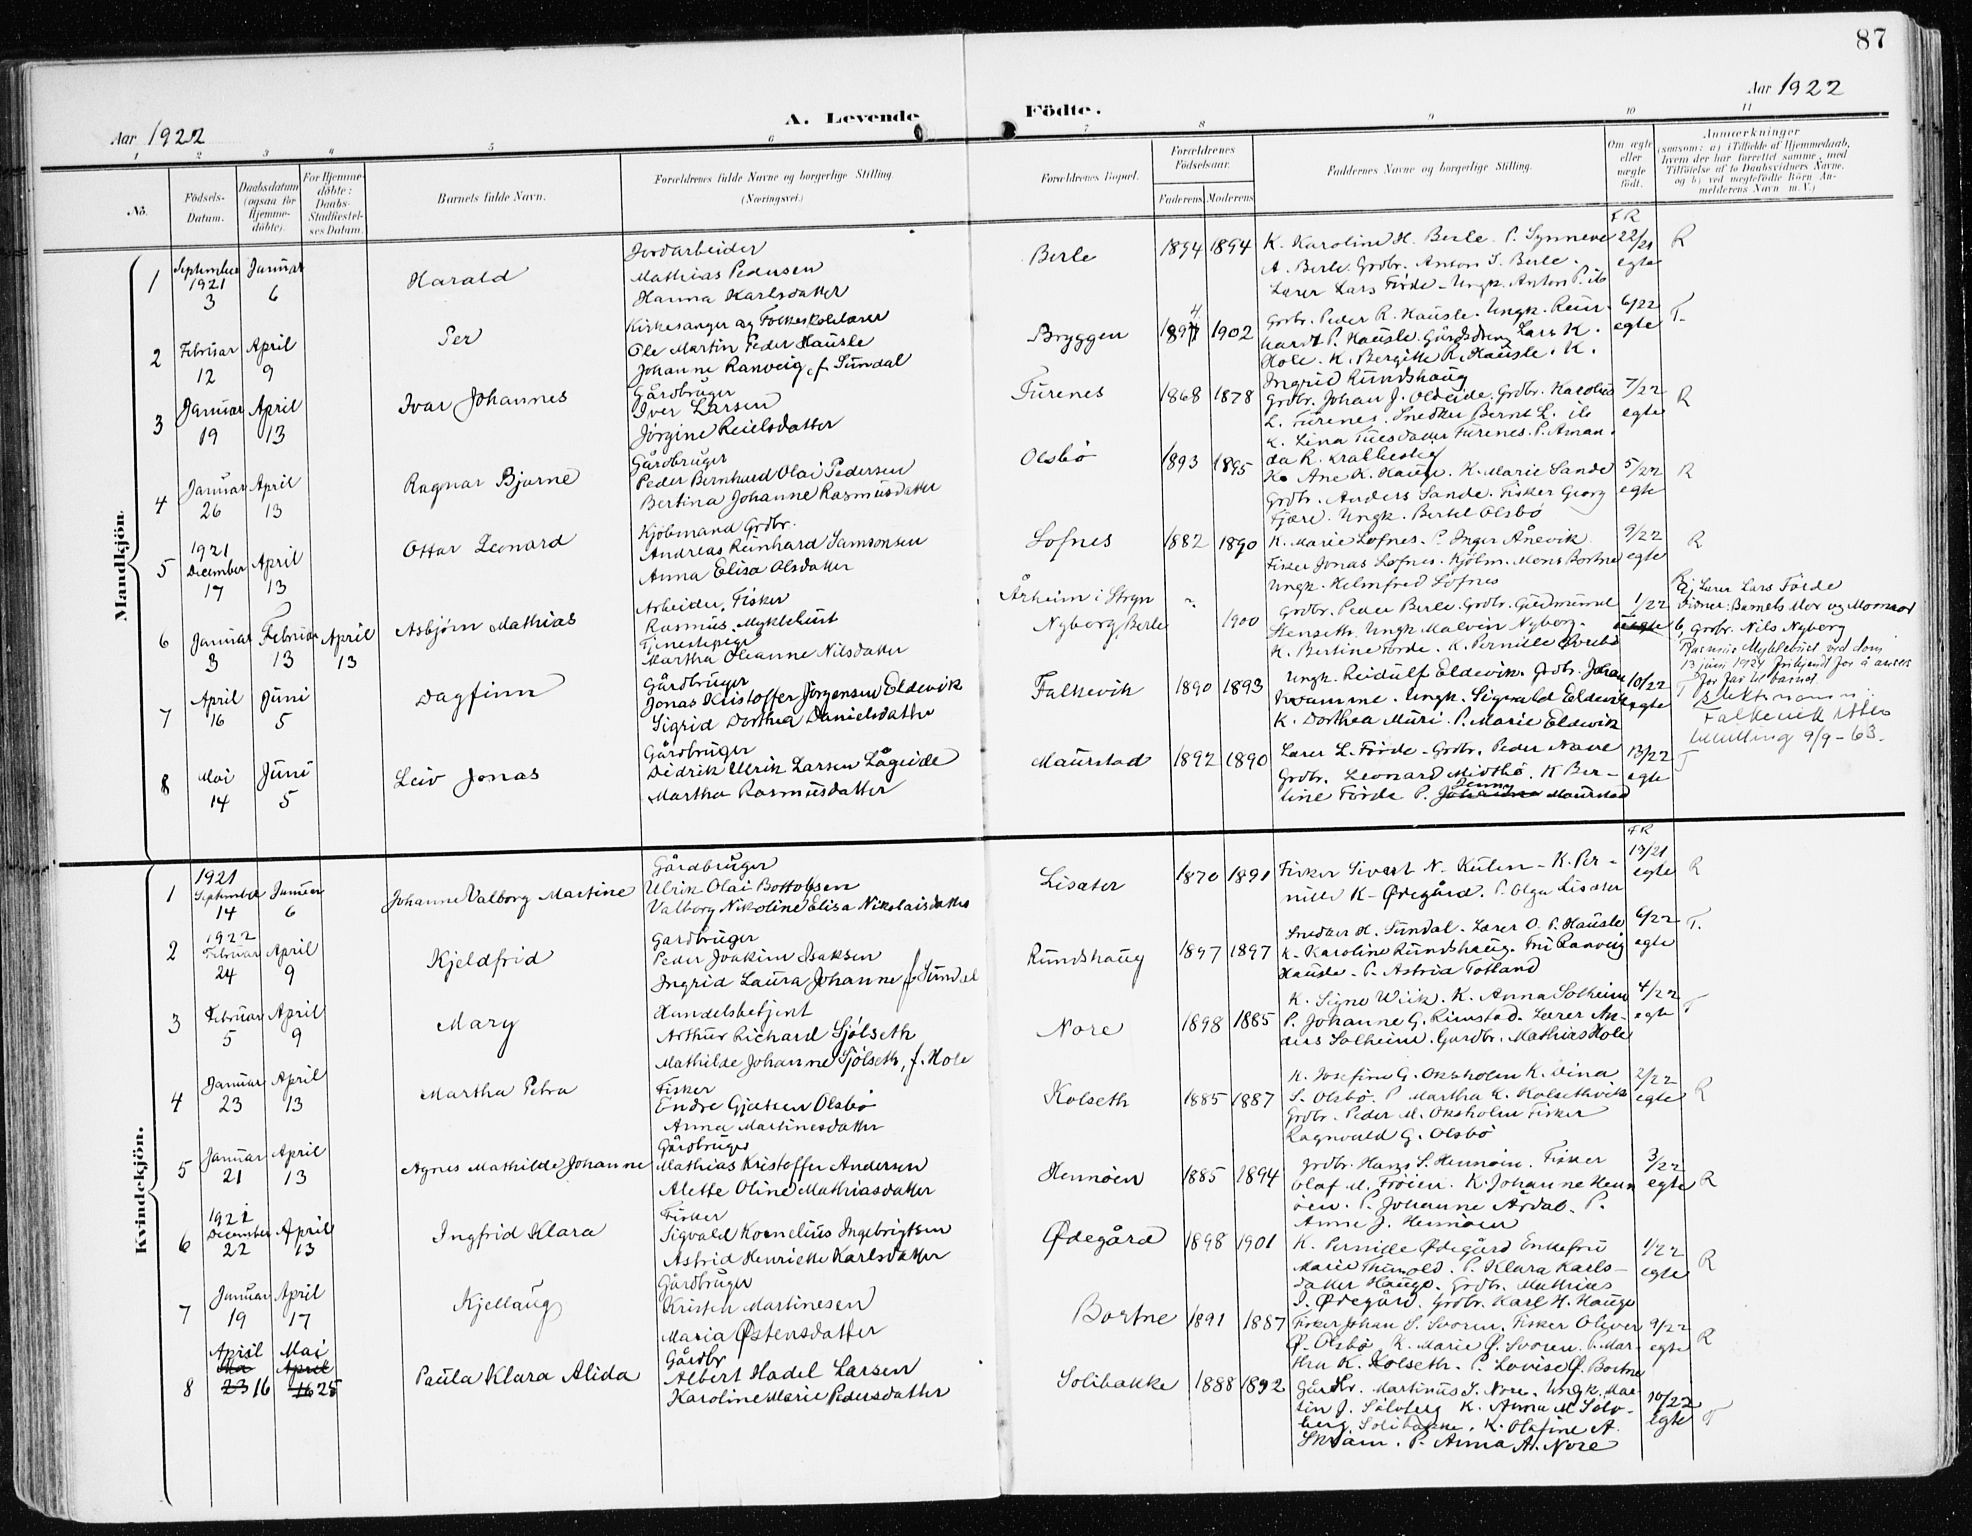 87
Aar 1922
A. Levende Födte.
Aar 1922
1 2 3 4 5 6 7 8 9 10 11
No.
Födsels-Datum.
Daabsdatum (ogsaa for Hjemme-döbte).
For Hjemme-döbte: Daabs-Stadfæstel-ses Datum.
Barnets fulde Navn.
Forældrenes fulde Navne og borgerlige Stilling.
(Næringsvei.)
Forældrenes Bopæl.
Forældrenes Födselsaar.
Faderens Moderens
Faddernes Navne og borgerlige Stilling.
Om ægte eller uægte födt.
Anmærkninger
(saasom: a) i Tilfælde af Hjemmedaab, hvem der har forrettet samme, med Tilföielse af to Daabsvidners Navne, og b) ved uægtefödte Börn An-melderens Navn m. V.)
Mandkjön.
1 September 1921 3 Januar 6 Harald
Jordarbeider
Mathias Pedersen
Hanna Karlsdatter
Berle 1894 1894
K. Karoline H. Berle. P. Synneve
A. Berle. Grdbr. Anton S. Berle.
Lærer Lars Förde. Ungk. Anton P. ib
F R 22/21 egte R
2 Februar 12 April 9 Per
Kirkesanger og Folkeskolelærer
Ole Martin Peder Hausle
Johanne Ranveig, f. Sundal
Bryggen 1894 1902
Grdbr. Peder R. Hausle. Ungk. Rein-
hardt P. Hausle. Gårdsdreng Lars K.
Hole. K. Bergitte R. Hausle. K.
Ingrid Rundshaug
6/22 egte T.
3 Januar 19 April 13 Ivar Johannes
Gårdbruger
Iver Larsen
Jörgine Reielsdatter
Furenes 1868 1878
Grdbr. Johan J. Oldeide. Grdbr. Karolus
L. Furenes. Snedker Bernt L. ib
K. Lina Tuesdatter Furenes. P. Aman-
da R. Krabbestig
7/22 egte R
4 Januar 26 April 13 Ragnar Bjarne
Gårdbruger
Peder Bernhard Olai Pedersen
Bertina Johanne Rasmusdatter
Olsbö 1893 1895
K. Ane K. Hauge. K. Marie Sande
Grdbr. Anders Sande. Fisker Georg
Fjære. Ungk. Bertel Olsbö
5/22 egte R
5 1921 December 17 April 13 Ottar Leonard
Kjöbmand Grdbr.
Andreas Reinhard Samsonsen
Anna Elisa Olsdatter
Lofnes 1882 1890
K. Marie Lofnes. P. Inger Ånevik
Fisker Jonas Lofnes. Kjöbm. Mons Bortne
Ungk. Helmfred Lofnes
9/22 egte R
6 Januar 3 Februar 13 April 13 Asbjörn Mathias
Arbeider, Fisker
Rasmus Myklebust
Tjenestepige
Martha Oleanne Nilsdatter
Årheim i Stryn
Nyborg Berle 1900
Grdbr. Peder Berle. Grdbr. Gudmund
Stenseth. Ungk. Malvin Nyborg.
K. Bertine Förde. K. Pernille Overbö
1/22 uegte
Lærer Lars Förde
Vidner: Barnets Mor og Mormor
Grdbr. Nils Nyborg
Rasmus Myklebust ved dom
13 juni 1924 frikjendt for å anses
for far til barnet.
7 April 16 Juni 5 Dagfinn
Gårdbruger
Jonas Kristoffer Jörgensen Eldevik
Sigrid Dorthea Danielsdatter
Falkevik 1890 1893
Ungk. Reidulf Eldevik. Grdbr. Johan
Ungk. Sigvald Eldevik
K. Dorthea Muri. P. Marie Eldevik
10/22 egte T
Falkevik
9/9-63.
8 Mai 14 Juni 5 Leiv Jonas
Gårdbruger
Didrik Ulrik Larsen Lågeide
Martha Rasmusdatter
Maurstad 1892 1890
Lærer L. Förde. Grdbr. Peder Nave
Grdbr. Leonard Midthö. K. Ber-
tine Förde P. Jenny Maurstad
13/22 egte T
Kvindekjön.
1 1921 September 14 Januar 6 Johanne Valborg Martine
Gårdbruger
Ulrik Olai Bottolfsen
Valborg Nikoline Elisa Nikolaisdatter
Lisæter 1870 1891
Fisker Sivert N. Kulen. K. Per-
nille K. Ødegård. P. Olga Lisæter
F R 13/21 egte R
2 1922 Februar 24 April 9 Kjeldfrid
Gardbruger
Peder Joakim Isaksen
Ingrid Laura Johanne f. Sundal
Rundshaug 1897 1897
Snedker H. Sundal. Lærer O. P. Hausle
K. Karoline Rundshaug. Fru Ranveig
Hausle. P. Astrid Totland
6/22 egte T.
3 Februar 5 April 9 Mary
Handelsbetjent
Arthur Richard Sjölseth
Mathilde Johanne Sjölseth, f. Hole
Nore 1898 1885
K. Signe Wiik. K. Anna Solheim
P. Johanne G. Rimstad. Lærer An-
ders Solheim. Gardbr. Mathias Hole
4/22 egte T
4 Januar 23 April 13 Martha Petra
Fisker
Endre Gjertsen Olsbö
Anna Martinesdatter
Kolseth 1885 1887
K. Josefine G. Oksholen K. Dina
S. Olsbö. P. Martha K. Kolsethvik
Grdbr. Peder M. Oksholen Fisker
Ragnvald G. Olsbö
2/22 egte R
5 Januar 21 April 13 Agnes Mathilde Johanne
Gårdbruger
Mathias Kristoffer Andersen
Alette Oline Mathiasdatter
Hennöen 1885 1894
Grdbr. Hans S. Hennöen. Fisker
Olaf M. Fröien. K. Johanne Henn
öen. P. Johanne Årdal. P.
Anne J. Hennöen
3/22 egte R
6 1921 December 22 April 13 Ingfrid Klara
Fisker
Sigvald Kornelius Ingebrigtsen
Astrid Henrikke Karlsdatter
Ødegård 1898 1901
K. Pernille Ødegård Enkefru
Marie Thunold. P. Klara Karls-
datter Hauge. Grdbr. Mathias
I. Ødegård. Grdbr. Karl H. Hauge
1/22 egte R
7 Januar 19 April 17 Kjellaug
Gårdbruger
Kristen Martinesen
Maria Østensdatter
Bortne 1891 1887
Fisker Johan S. Svoren. Fisker Oliver
Ø. Olsbö. K. Marie Ø. Svoren. P. Mar-
tha K. Kolseth. P. Lovise Ø. Bortne
9/22 egte R
8 April Mai 23 16 Mai April 16 25 Paula Klara Alida
Gårdbr
Albert Hadel Larsen
Karoline Marie Pedersdatter
Solibakke 1888 1892
Gårdbr. Martinus S. Nore. Ungk. Mar-
tin J. Solvberg K. Anna M. Solv-
berg, Solibakke. K. Olafine A.
Skram. P. Anna A. Nore
10/22 egte T